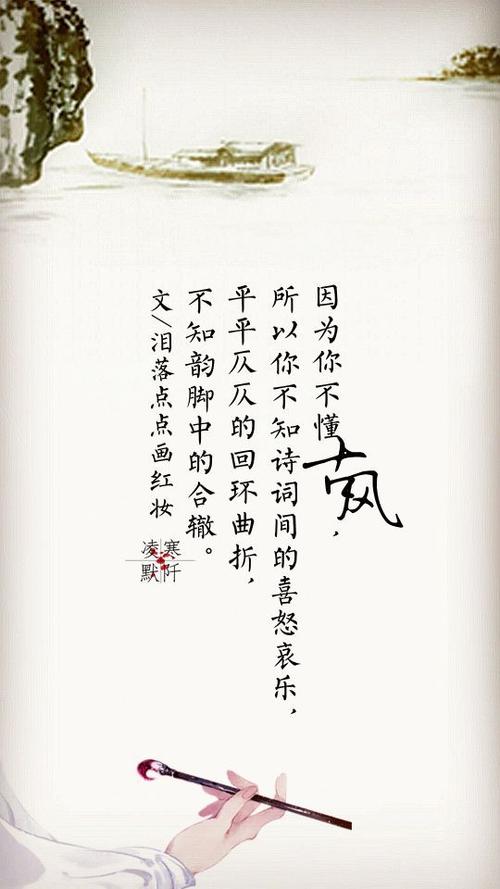 因为你不懂古风，
所以你不知诗词间的喜怒哀乐，
平平仄仄的回环曲折，
不知韵脚中的合辙。
文/泪落点点画红妆
凌寒
默阡